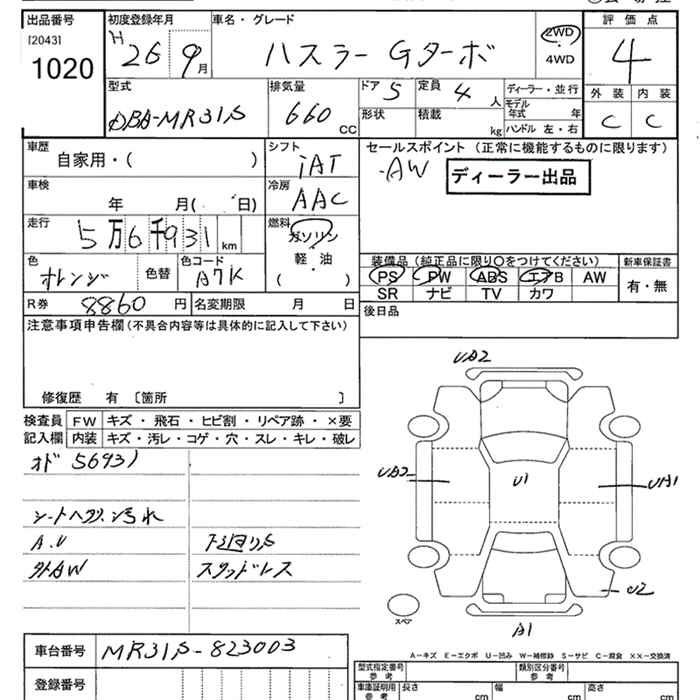 出品番号 初度登録年月 車名・グレード 評価点
[2043] H 26 9月 ハスラー Gターボ 2WD 4
1020 4WD
型式 排気量 ドア 5 定員 4人 ディーラー・並行 外装 内装
DBA-MR31S 660cc 形状 積載 kg モデル年式 年 C C
ハンドル 左・右
車歴 シフト セールスポイント (正常に機能するものに限ります)
自家用・( ) iAT ・AW ディーラー出品
車検 冷房
年 月( 日) AAC
走行 燃料
5万6千931km ガソリン
軽・油 装備品(純正品に限り〇をつけてください) 新車保証書
色 色コード ( ) PS PW ABS エアB AW 有・無
オレンジ 色替 A7K SR ナビ TV カワ
R券 8860円 名変期限 月 日 後日品
注意事項申告欄(不具合内容等は具体的に記入して下さい)
修復歴 有 〔箇所 〕
検査員 FW キズ・飛石・ヒビ割・リペア跡・×要
記入欄 内装 キズ・汚レ・コゲ・穴・スレ・キレ・破レ
オド 56931
シートヘッドリン汚れ
A.U 下廻りS
外AW スタッドレス
UB2
U1
UA1
U2
A1
スペア
A－キズ E－エクボ U－凹み W－補修跡 S－サビ C－腐食 ××－交換済
車台番号 MR31S-823003
登録番号
型式指定番号 参考 類別区分番号 参考
車庫証明用 参考 長さ cm 幅 cm 高さ cm